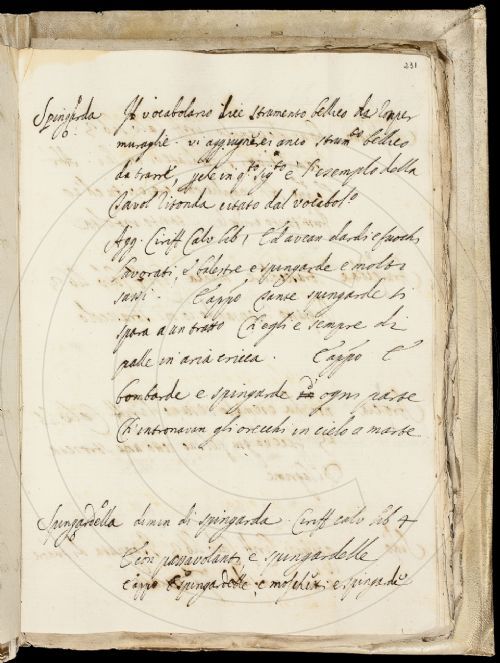 231
Spingarda Il vocabolario dice strumento bellico da romper
muraglie. vi aggiugnerei anco strum.to bellico
da trarre, che in q.to sig.to è l'esemplo della
Tavol Ritonda citato dal vocabol.o
Agg. Ciriff Calv lib 1 Ed avean dardi e fuochi
lavorati, E balestre e spingarde e molti
sassi. E appo Tante spingarde si
spara a un tratto Ch'egli è sempre di
palle in aria ricca. E appo E
bombarde e spingarde da ogni parte
Ch'intronavan gli orecchi in cielo a marte
Spingardella dimin di spingarda. Ciriff calv lib 4
E con passavolanti, e spingardelle
e appo E spingardelle e moschetti e spingarde